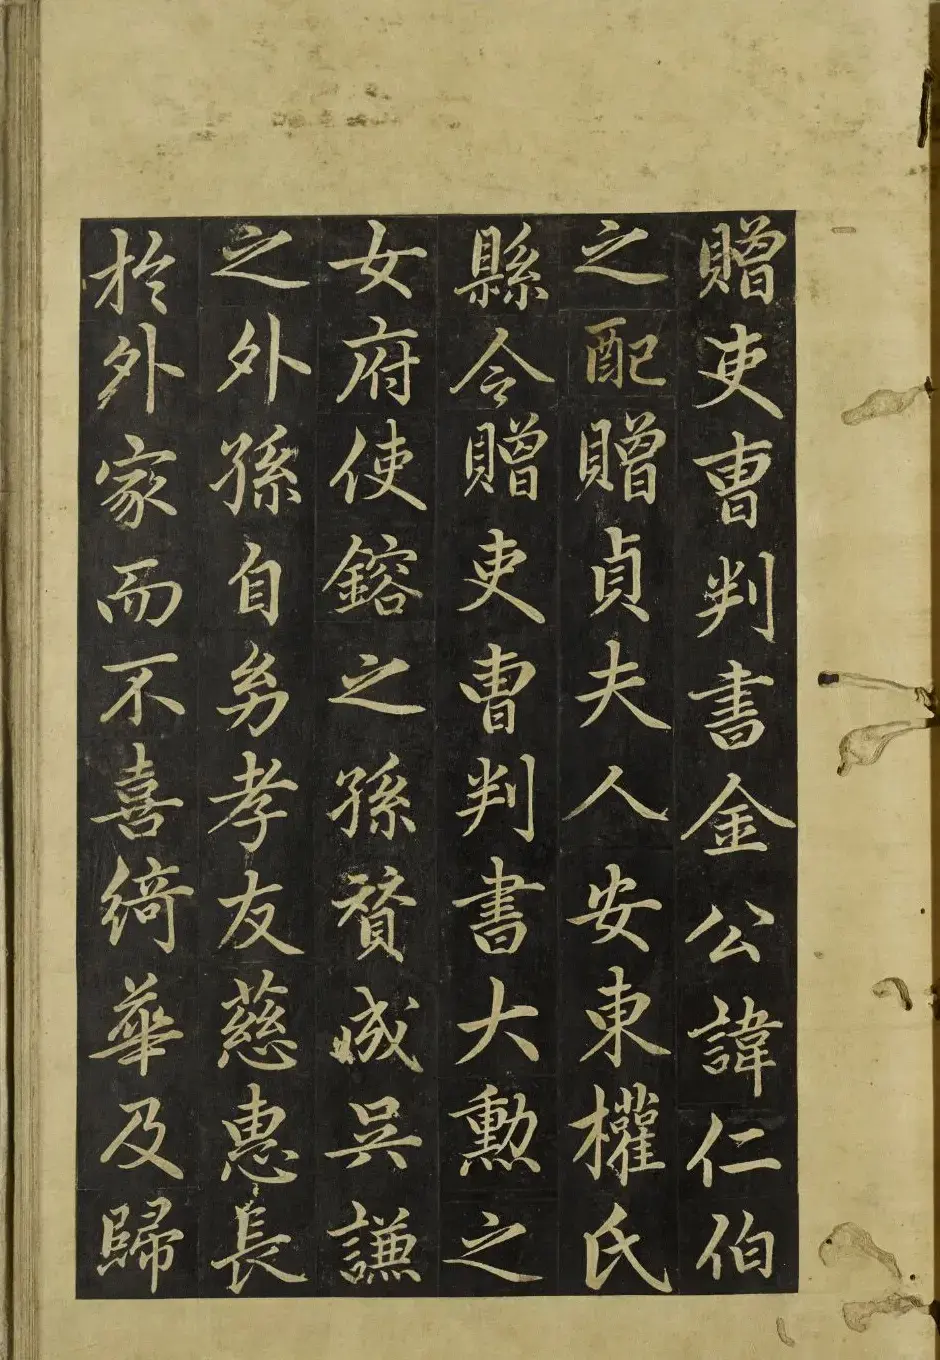 贈吏曺判書金公諱仁伯
之配贈貞夫人安東權氏
縣令贈吏曺判書大勳之
女府使鎔之孫賛成吳謙
之外孫自㓜孝友慈惠長
於外家而不喜綺華及歸